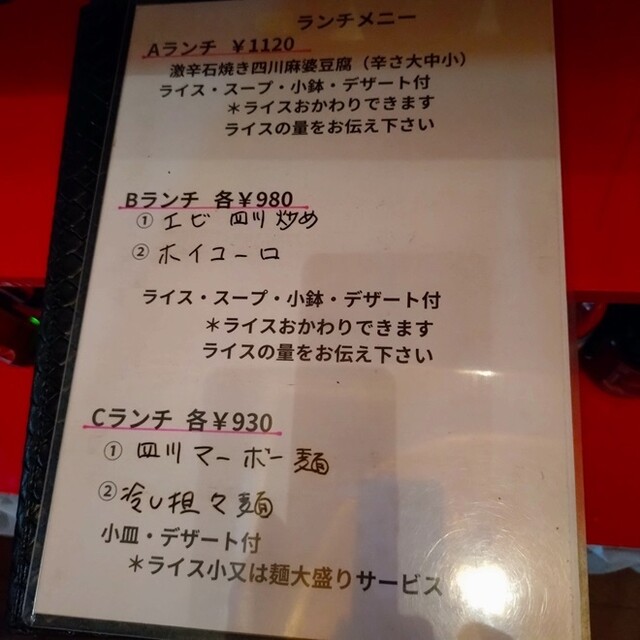 ランチメニー
Aランチ ￥1120
激辛石焼き四川麻婆豆腐（辛さ大中小）
ライス・スープ・小鉢・デザート付
＊ライスおかわりできます
ライスの量をお伝え下さい
Bランチ 各￥980
① エビ 四川 炒め
② ホイコーロ
ライス・スープ・小鉢・デザート付
＊ライスおかわりできます
ライスの量をお伝え下さい
Cランチ 各￥930
① 四川 マーボー 麺
② 冷し担々麺
小皿・デザート付
＊ライス小又は麺大盛りサービス